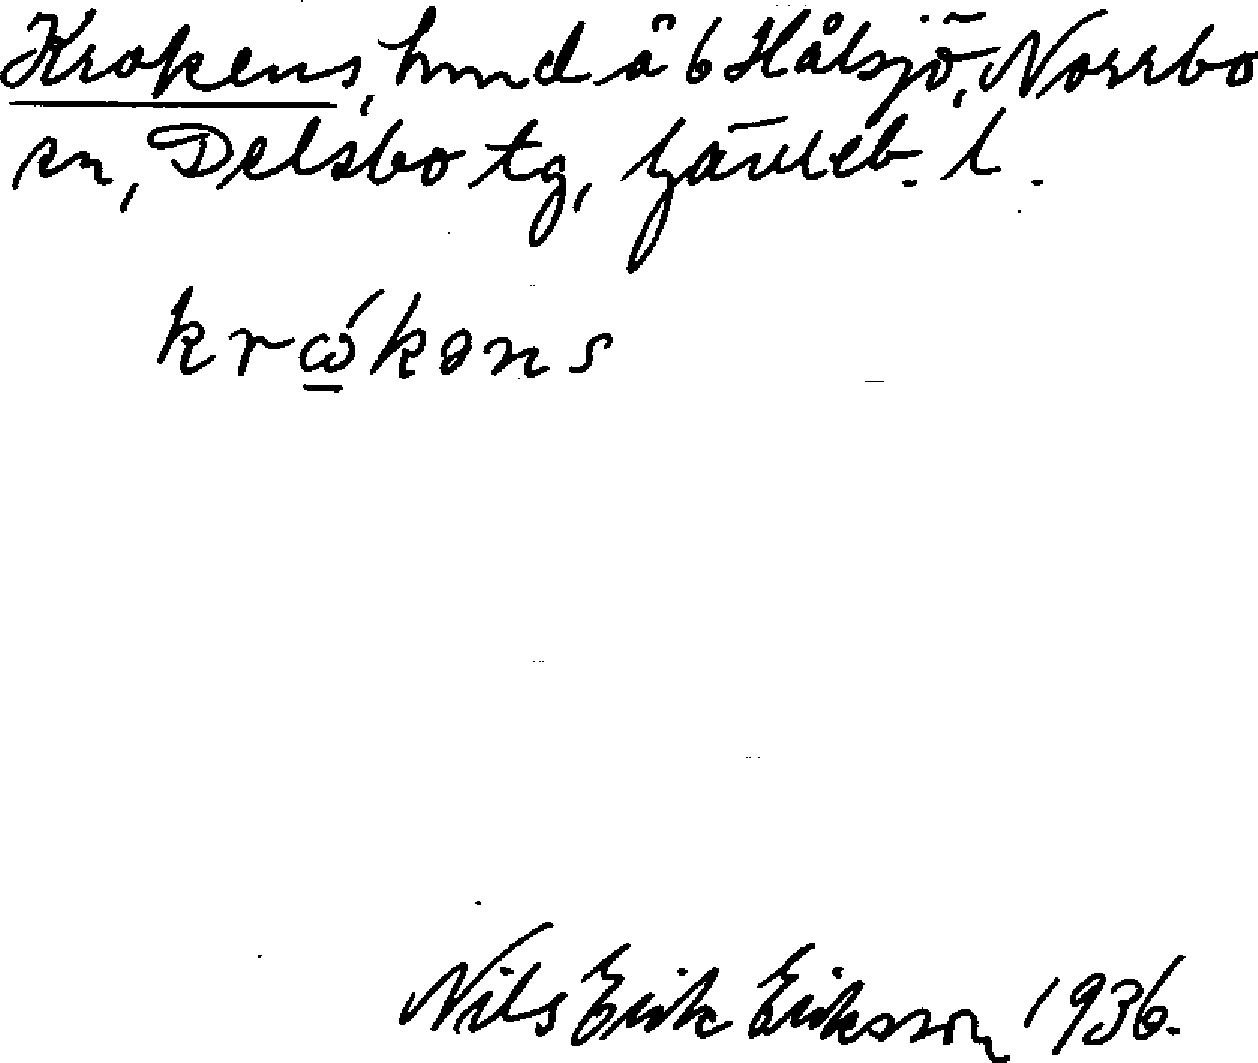 Krokens, hmd å 6 Hålsjö, Norrbo
sn, Delsbo tg, Gävleb. l.
krώkəns
Nils Erik Eriksson 1936.